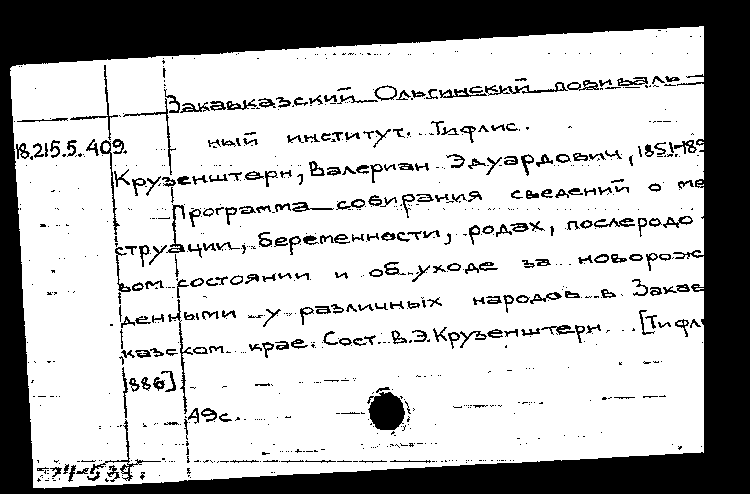 Закавказский Ольгинский повиваль-
18.215.5.409. ный институт. Тифлис.
Крузенштерн, Валериан Эдуардович, 1851-189
Программа собирания сведений о ме
струации, беременности, родах, послеродо-
вом состоянии и об уходе за новорож
денными у различных народов в Закав
казском крае. Сост. В.Э.Крузенштерн. [Тифл
1886].
49с.